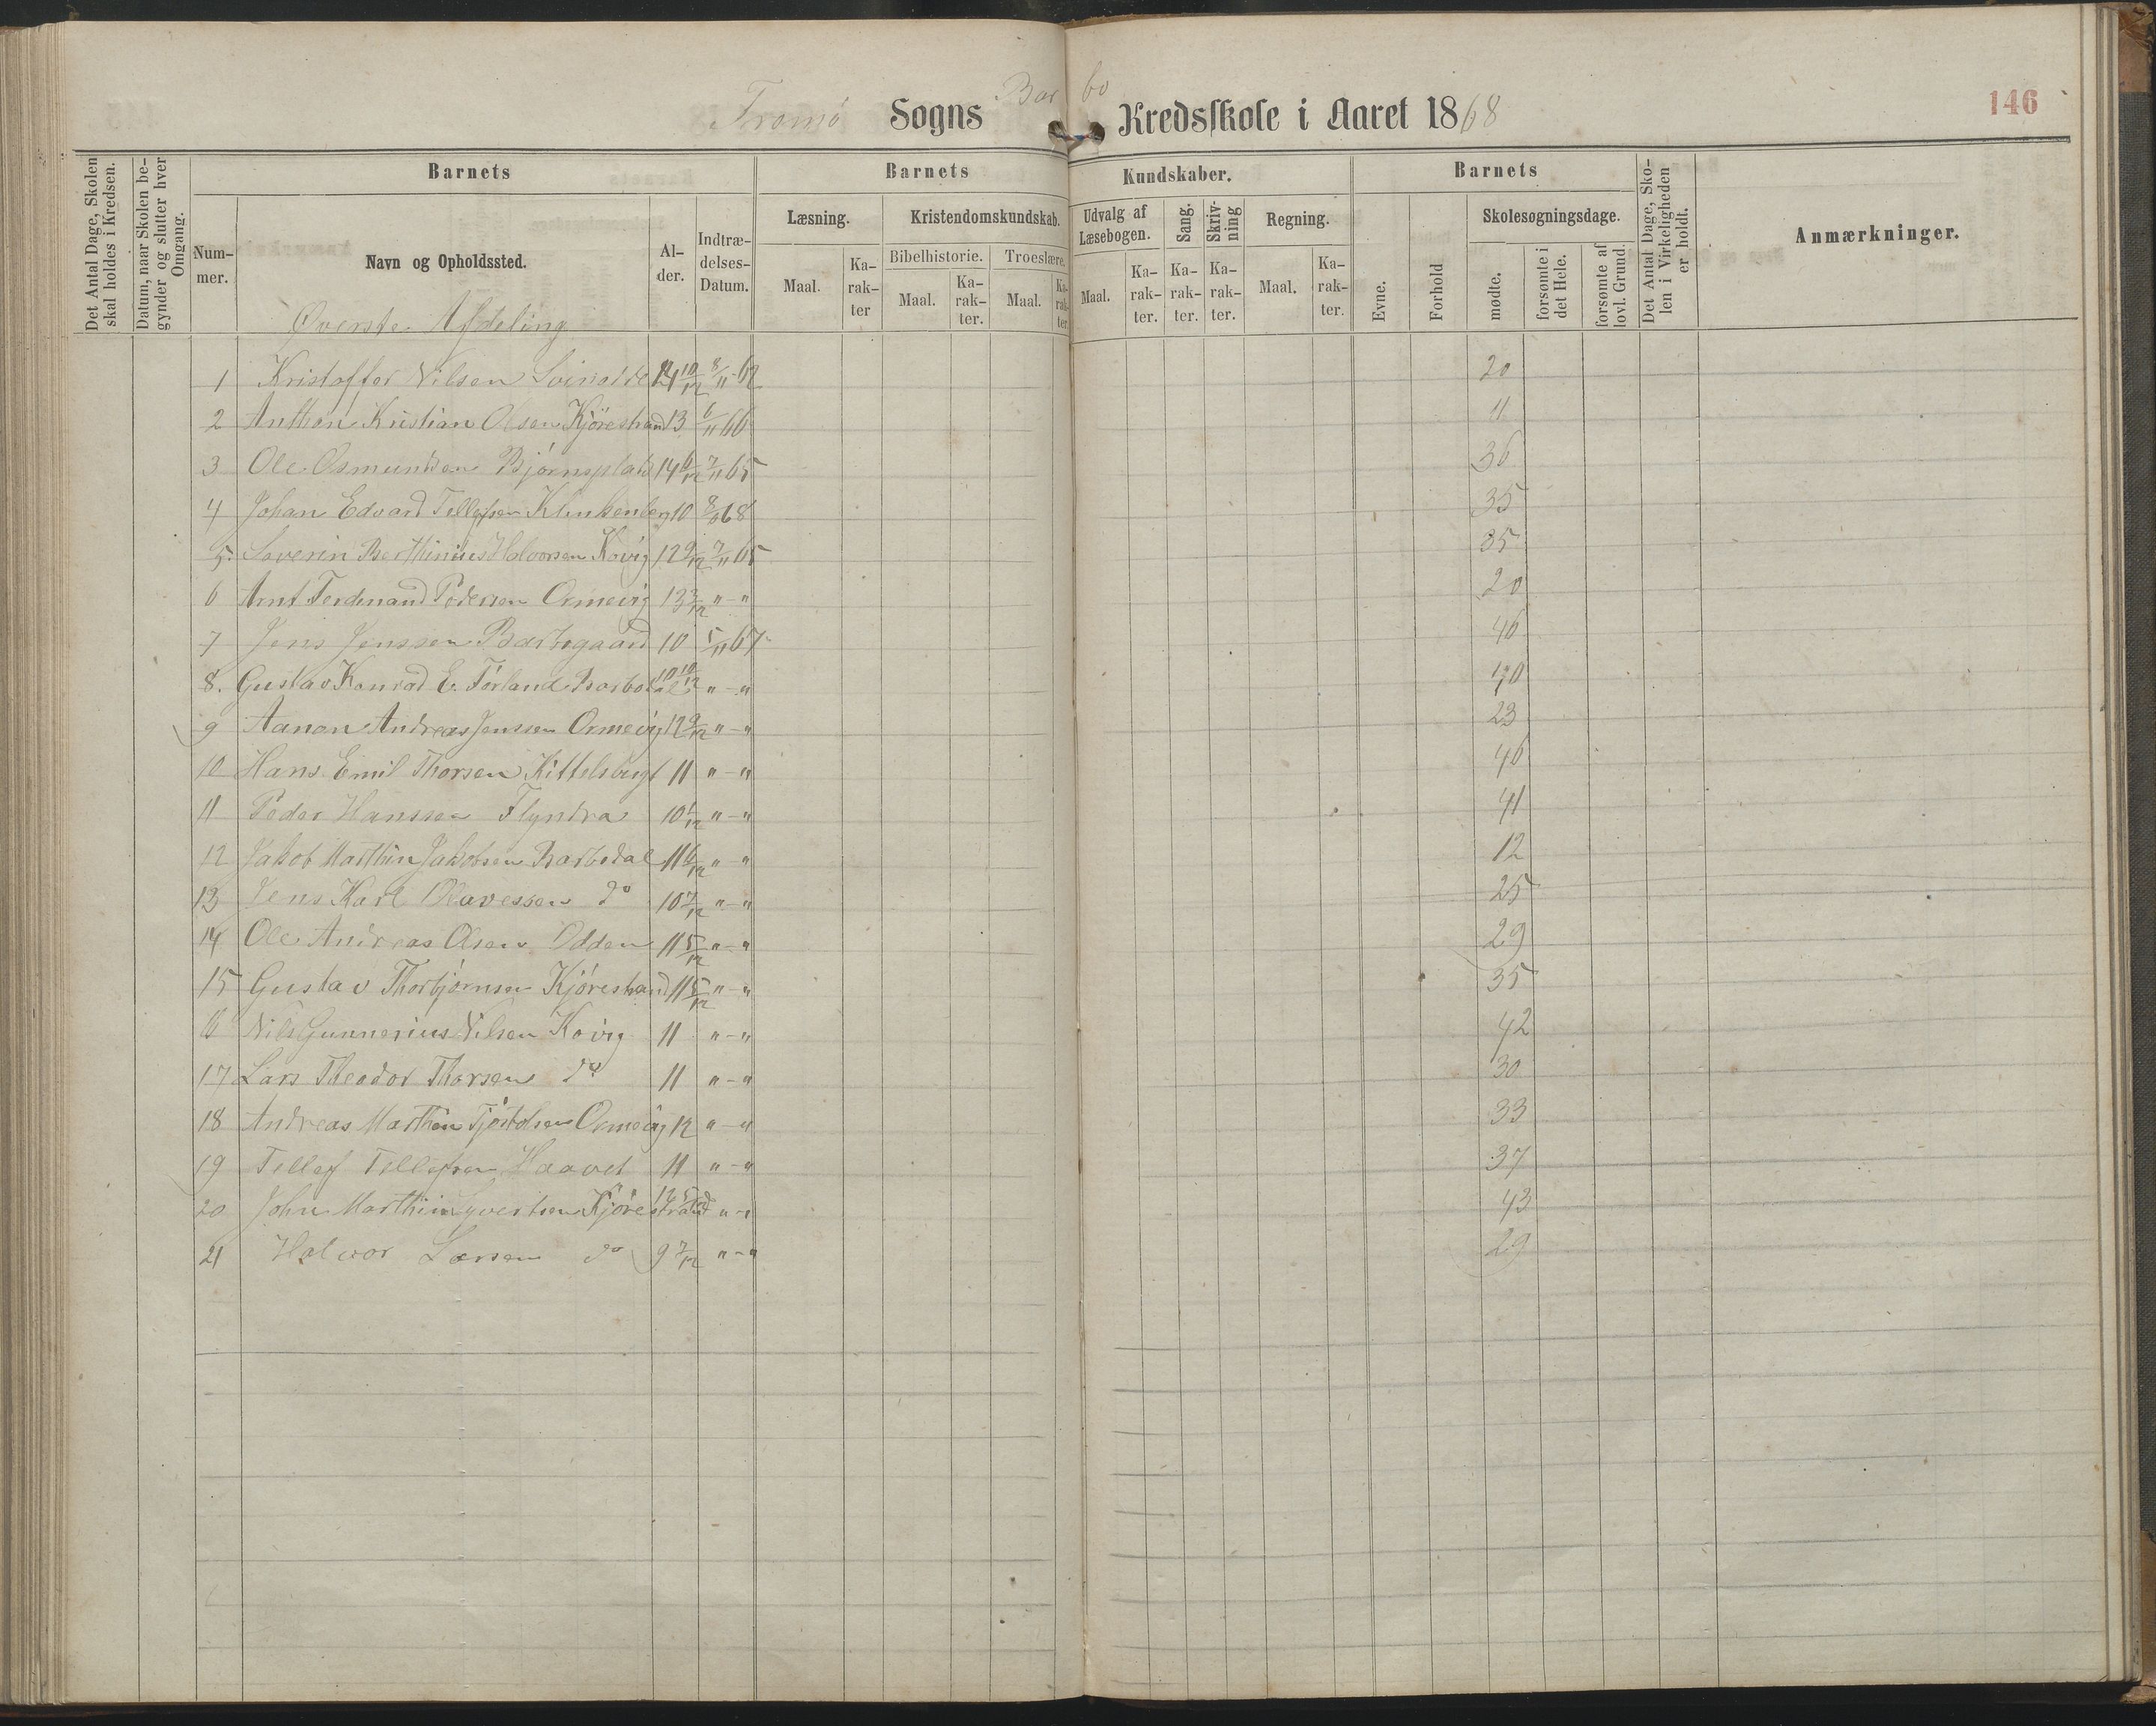 Tromø Sogns Barbo Kredsskole i Aaret 1868
146
Det Antal Dage, Skolen skal holdes i Kredsen.
Datum, naar Skolen begynder og slutter hver Omgang.
Barnets
Barnets
Kundskaber.
Barnets
Det Antal Dage, Skolen i Virkeligheden er holdt.
Anmærkninger.
Nummer.
Navn og Opholdssted.
Alder.
Indtrædelses-Datum.
Læsning.
Kristendomskundskab.
Udvalg af Læsebogen.
Sang.
Skrivning
Regning.
Evne.
Forhold
Skolesøgningsdage.
Bibelhistorie.
Troeslære.
Maal.
Karakter
Maal.
Karakter.
Maal.
Karakter
Maal.
Karakter.
Karakter.
Karakter.
Maal.
Karakter.
mødte.
forsømte i det Hele.
forsømte af lovl. Grund.
Øverste Afdeling
1 Kristoffer Nilsen 10/12 8/11-62 20
2 Anthon Kristian Olsen Kjörestrand 13 6/11 66 11
3 Ole Osmundsen Bjørnsplads 14 6/12 7/11 65 36
4 Johan Edvard Tellefsen Klinkenberg 10 68 35
5. Severin Berthinius Halvorsen Kovig 12 9/12 7/11 65 35
6 Arnt Ferdinand Pedersen Ormevig 13 3/12 "-" 20
7 Jens Jenssen Barbogaard 10 5/11 67 46
8. Gustav Konrad E. Förland Barbodal 10 10/12 "-" 40
9 Aanon Andreas Jenssen Ormevig 12 9/12 "-" 23
10 Hans Emil Thorsen Kittelsbugt 11 "-" 46
11 Peder Hanssen Flyndra 10 1/12 "-" 41
12 Jakob Marthin Jakobsen Barbodal 11 6/12 "-" 12
13 Jens Karl Olavessen do 10 7/12 "-" 25
14 Ole Andreas Olsen Odden 11 5/12 "-" 29
15 Gustav Thorbjörnsen Kjörestrand 11 5/12 "-" 35
16 Nils Gunnerius Nilsen Kovig 11 "-" 42
17 Lars Theodor Thorsen do 11 "-" 30
18 Andreas Marthin Tjöstolsen Ormevig 12 "-" 33
19 Tellef Tellefsen Haavet 11 "-" 37
20 John Marthin Syvertsen Kjörestrand 12 "-" 43
21 Halvor Larsen do 9 7/12 "-" 29